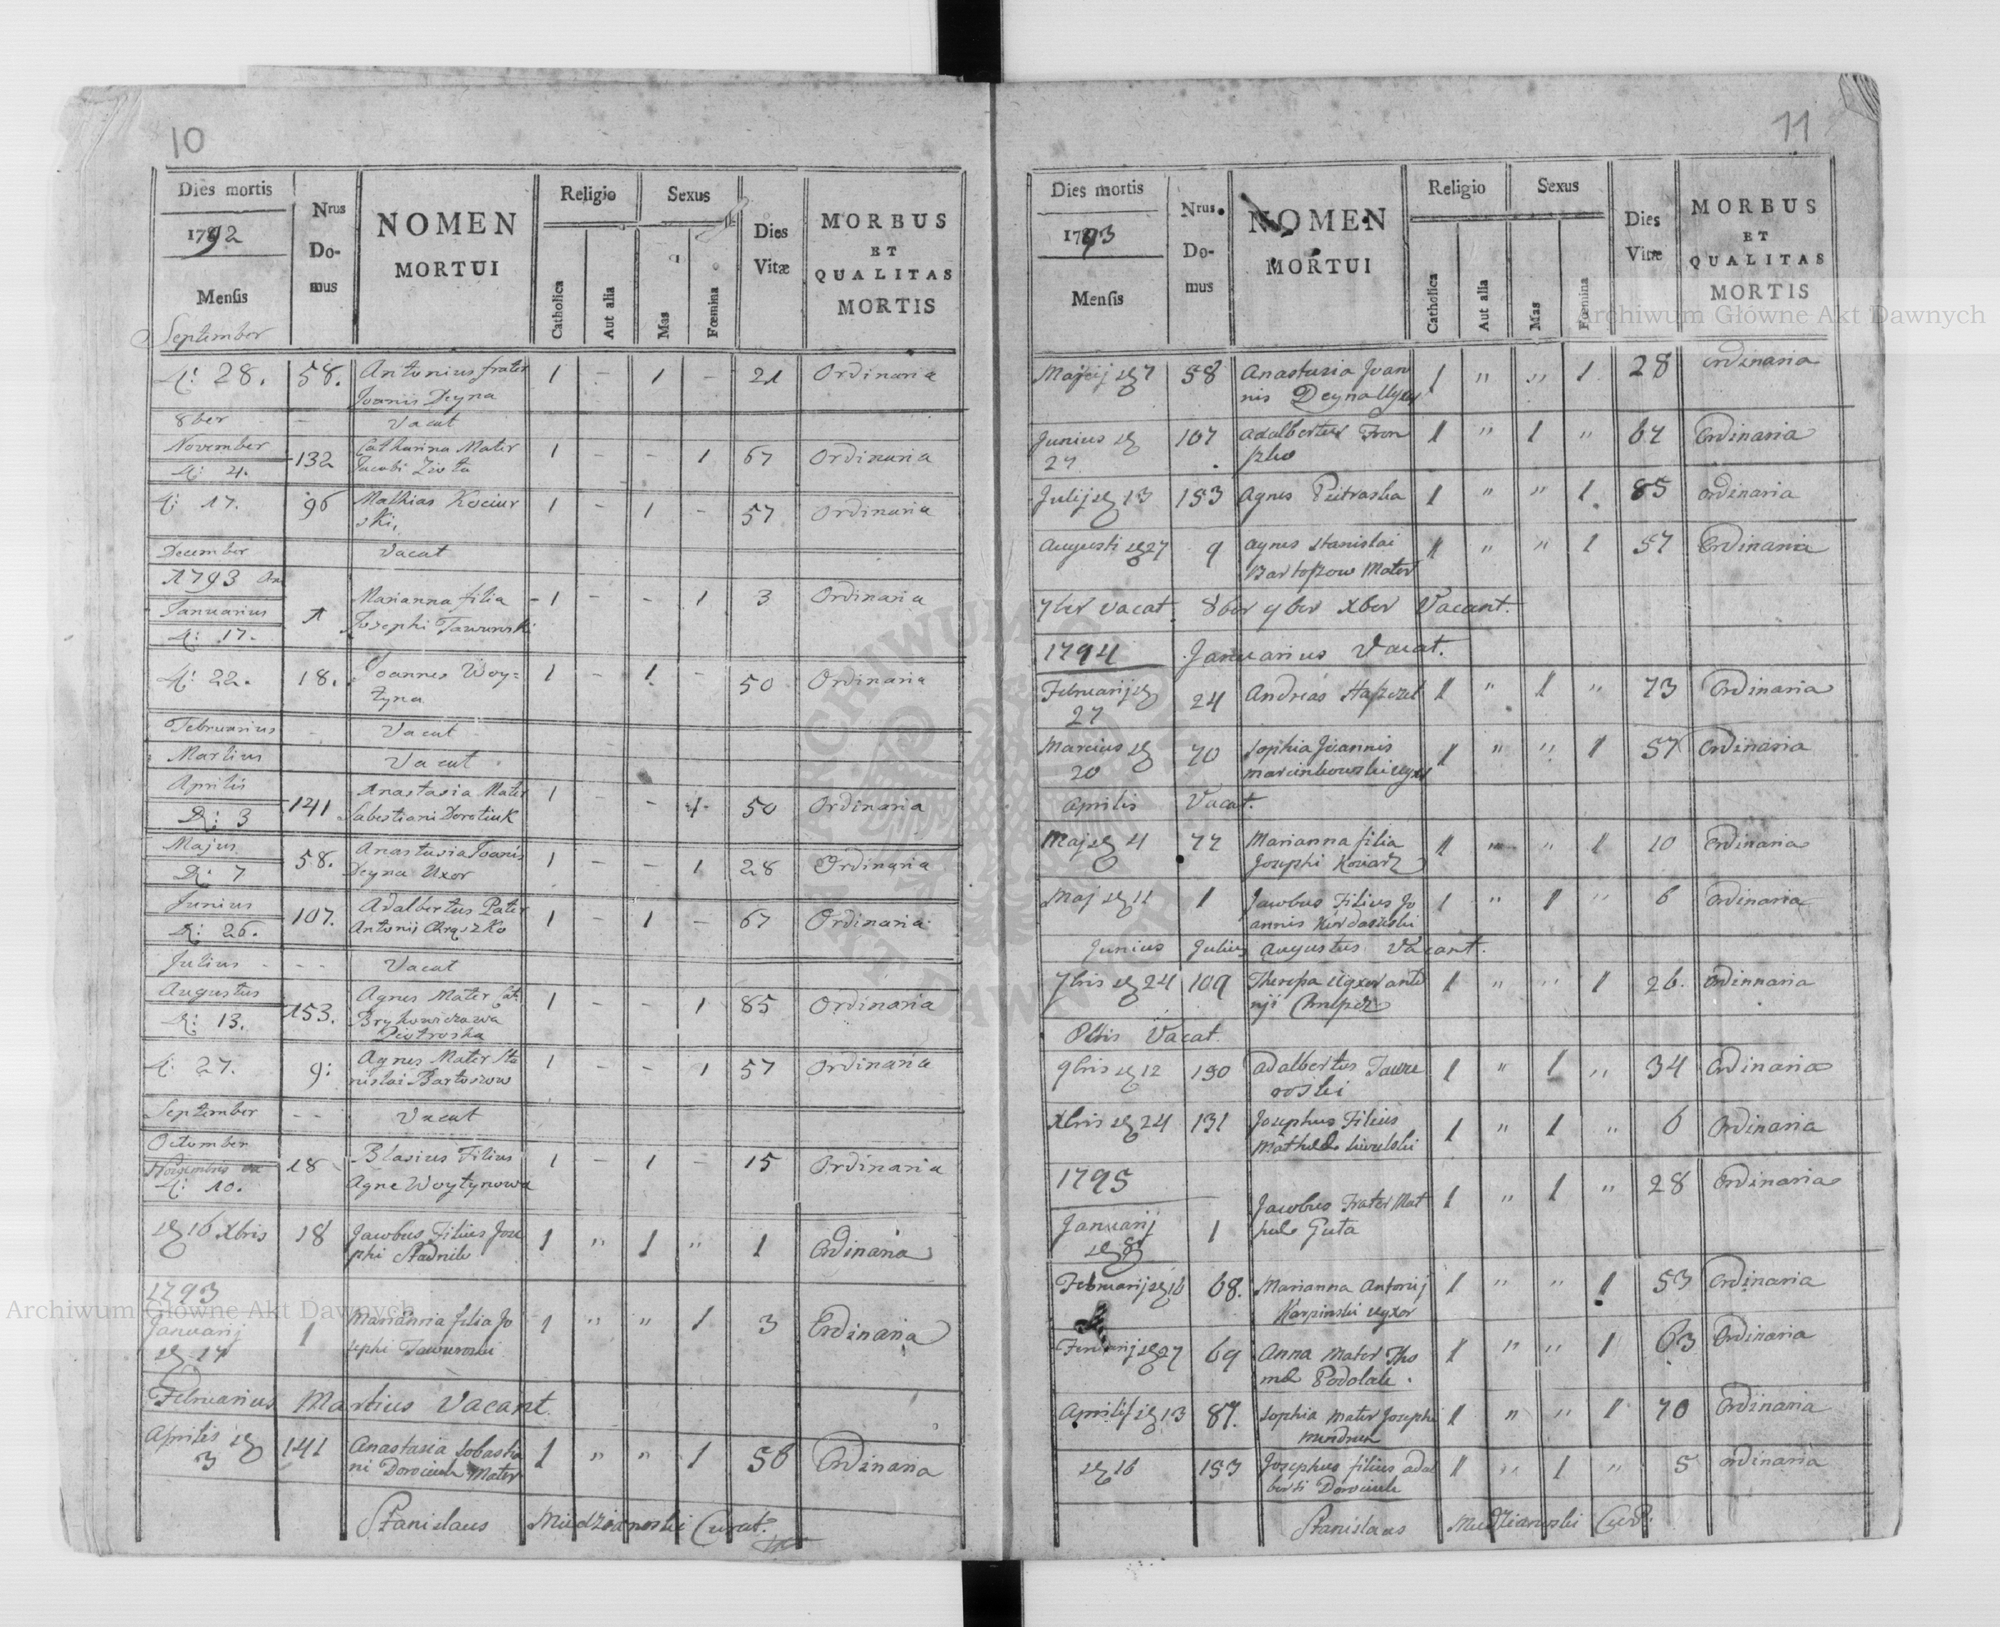 10
Dies mortis
1792
Mensis
Nrus Domus
NOMEN
MORTUI
Religio
Catholica
Aut alia
Sexus
Mas
Fœmina
Dies Vitæ
MORBUS
ET
QUALITAS
MORTIS
September
28. 58. Antonius frater 1 – 1 – 21 Ordinaria
Joanis Deyna
8ber – Vacat
November
4. 132 Catharina Mater 1 – – 1 67 Ordinaria
Jacobi
17. 96 Mathias Kociur 1 – 1 – 57 Ordinaria
ski,
December Vacat
1793
Januarius
17. 1 Marianna filia – 1 – – 1 3 Ordinaria
Josephi Tawuroski
22. 18. Joannes Woy= 1 – 1 – 50 Ordinaria
tyna
Februarius – Vacat
Martius Vacat
Aprilis
3 141 Anastasia Mater 1 – – 1 50 Ordinaria
Sabestiani Dorotiuk
Majus
7 58. Anastasia Joanis 1 – – 1 28 Ordinaria
Deyna Uxor
Junius
26. 107. Adalbertus Pater 1 – 1 – 67 Ordinaria
Antonij
Julius – – – Vacat
Augustus
13. 153. Agnes Mater 1 – – 1 85 Ordinaria
27. 9: Agnes Mater Sta 1 – – 1 57 Ordinaria
nislai Bartosow
September – – Vacat
October
10. 18 Blasius Filius 1 – 1 – 15 Ordinaria
Agne Woytynowa
16 Xbris 18 Jacobus Filius Jose 1 " 1 " 1 Ordinaria
phi Stadnik
1793
Januarij
17 1 Marianna filia Jo 1 " " 1 3 Ordinaria
sephi Tawuroski
Februarius Martius Vacant
Aprilis
3 141 Anastasia Sobastia 1 " " 1 50 Ordinaria
ni Dorociuk Mater
Stanislaus Miedzianoski Curat.
11
Dies mortis
1793
Mensis
Nrus Domus
NOMEN
MORTUI
Religio
Catholica
Aut alia
Sexus
Mas
Fœmina
Dies Vitæ
MORBUS
ET
QUALITAS
MORTIS
7 58 Anastasia Joan 1 " " 1 28 Ordinaria
nis Deyna
Junius 27 107 Adalbertus 1 " 1 " 67 Ordinaria
Julij 13 153 Agnes Peitraska 1 " " 1 85 Ordinaria
Augusti 27 9 Agnes Stanislai 1 " " 1 57 Ordinaria
Bartoszow Mater
7ber vacat 8ber 9ber Xber Vacant.
1794 Januarius Vacat.
Februarij 27 24 Andreas 1 " 1 " 73 Ordinaria
Marcius 20 70 Sophia Joannis 1 " " 1 57 Ordinaria
Marcinkowski
Aprilis Vacat.
Maj 4 77 Marianna filia 1 " " 1 10 Ordinaria
Josephi
Maj 11 1 Jacobus Filius Jo 1 " 1 " 6 Ordinaria
annis
Junius Julius Augustus Vacant.
7bris 24 109 1 " " 1 26. Ordinnaria
8bris Vacat.
9bris 12 130 Adalbertus Tawu 1 " 1 " 34 Ordinaria
roski
Xbris 24 131 Josephus Filius 1 " 1 " 6 Ordinaria
1795
Januarij 8 1 Jacobus Frater Mat 1 " 1 " 28 Ordinaria
Guta
Februarij 16 68. Marianna Antonij 1 " " 1 53 Ordinaria
Karpinski
27 69 Anna Mater Tho 1 " " 1 63 Ordinaria
mæ Podolak.
Aprilis 13 87. Sophia Mater Josephi 1 " " 1 70 Ordinaria
16 153 Josephus filius Adal 1 " 1 " 5 Ordinaria
berti Dorociuk
Stanislaus Miedzianoski
Archiwum Główne Akt Dawnych
Archiwum Główne Akt Dawnych